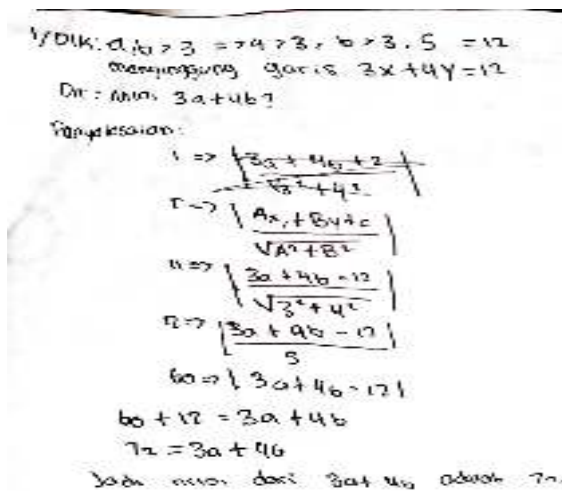 1/ Dik: a, b > 3 => a > 3, b > 3. 5 = 12
menyinggung garis 3x + 4y = 12
Dit: nilai 3a + 4b?
Penyelesaian:
r => |3a + 4b + 2| / √3² + 4²
r => |Ax, + By + c / √A² + B²|
12 => |3a + 4b - 12 / √3² + 4²|
12 => |3a + 4b - 12 / 5|
60 => |3a + 4b - 12|
60 + 12 = 3a + 4b
72 = 3a + 4b
Jadi nilai dari 3a + 4b adalah 72.